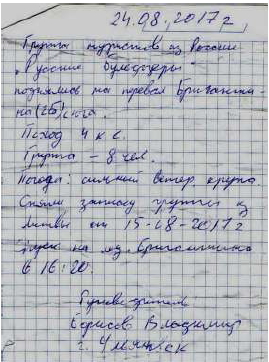 24.08.2017г.
Группа туристов из России
"Русские бульдозеры"
поднялись на перевал Бригантина
-на (2Б) с юга.
Поход 4 к.с.
Группа – 8 чел.
Погода: сильный ветер, крупа.
Сняли записку группы из
Литвы от 15-08-2017г
на лед. Бригантина
в 16:20.
Руководитель
Борисов Владимир
г. Ульяновск